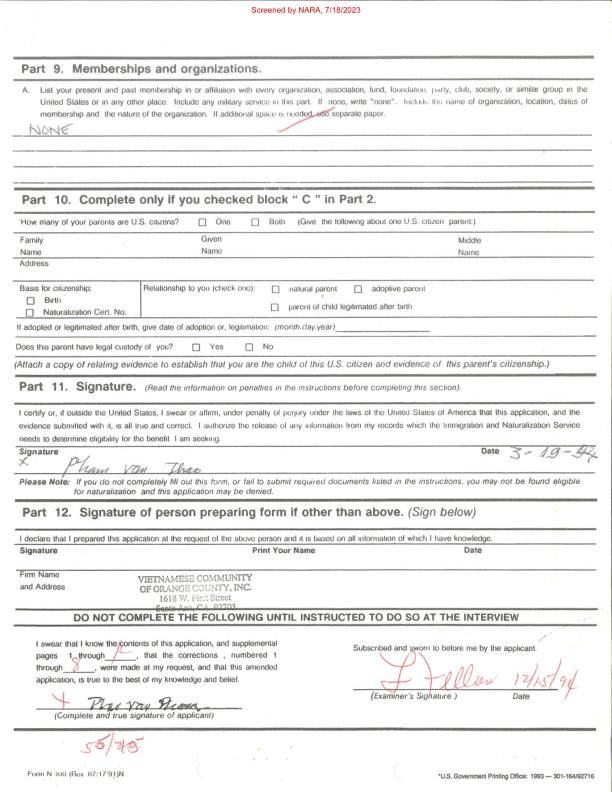 Screened by NARA, 7/18/2023
Part 9. Memberships and organizations.
A. List your present and past membership in or affiliation with every organization, association, fund, foundation, party, club, society, or similar group in the
United States or in any other place. Include any military service in this part. If none, write "none". Include the name of organization, location, dates of
membership and the nature of the organization. If additional space is needed, use separate paper.
NONE
Part 10. Complete only if you checked block " C " in Part 2.
How many of your parents are U.S. citizens? One Both (Give the following about one U.S. citizen parent:)
Family Given Middle
Name Name Name
Address
Basis for citizenship: Relationship to you (check one): natural parent adoptive parent
Birth
Naturalization Cert. No. parent of child legitimated after birth
If adopted or legitimated after birth, give date of adoption or, legitimation: (month,day,year)
Does this parent have legal custody of you? Yes No
(Attach a copy of relating evidence to establish that you are the child of this U.S. citizen and evidence of this parent's citizenship.)
Part 11. Signature. (Read the information on penalties in the instructions before completing this section).
I certify or, if outside the United States, I swear or affirm, under penalty of perjury under the laws of the United States of America that this application, and the
evidence submitted with it, is all true and correct. I authorize the release of any information from my records which the Immigration and Naturalization Service
needs to determine eligibility for the benefit I am seeking.
Signature Date 3-19-94
x Pham Van Thao
Please Note: If you do not completely fill out this form, or fail to submit required documents listed in the instructions, you may not be found eligible
for naturalization and this application may be denied.
Part 12. Signature of person preparing form if other than above. (Sign below)
I declare that I prepared this application at the request of the above person and it is based on all information of which I have knowledge.
Signature Print Your Name Date
Firm Name
and Address
VIETNAMESE COMMUNITY
OF ORANGE COUNTY, INC.
1618 W. First Street
Santa Ana, CA 92703
DO NOT COMPLETE THE FOLLOWING UNTIL INSTRUCTED TO DO SO AT THE INTERVIEW
I swear that I know the contents of this application, and supplemental
pages 1 through , that the corrections , numbered 1
through 8 , were made at my request, and that this amended
application, is true to the best of my knowledge and belief.
(Complete and true signature of applicant)
Subscribed and sworn to before me by the applicant.
12/15/94
(Examiner's Signature ) Date
Form N-400 (Rev. 07/17/91)N
*U.S. Government Printing Office: 1993 — 301-164/92716